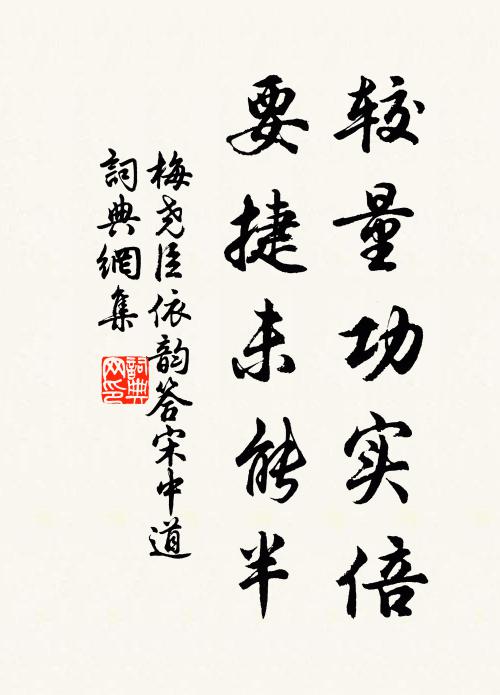 较量功实倍
要捷未能半
梅尧臣依韵答宋中道
詞典網集
詞典網印